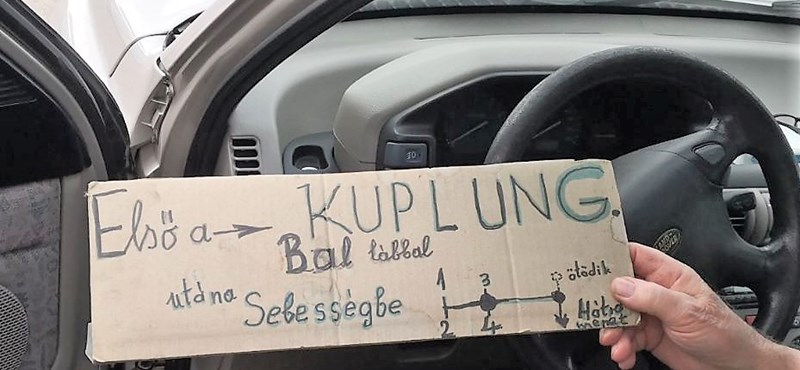 Első a → KUPLUNG
Bal lábbal
utána Sebességbe
1 3 ötödik
2 4 Hátra
menet
LAND
ROVER